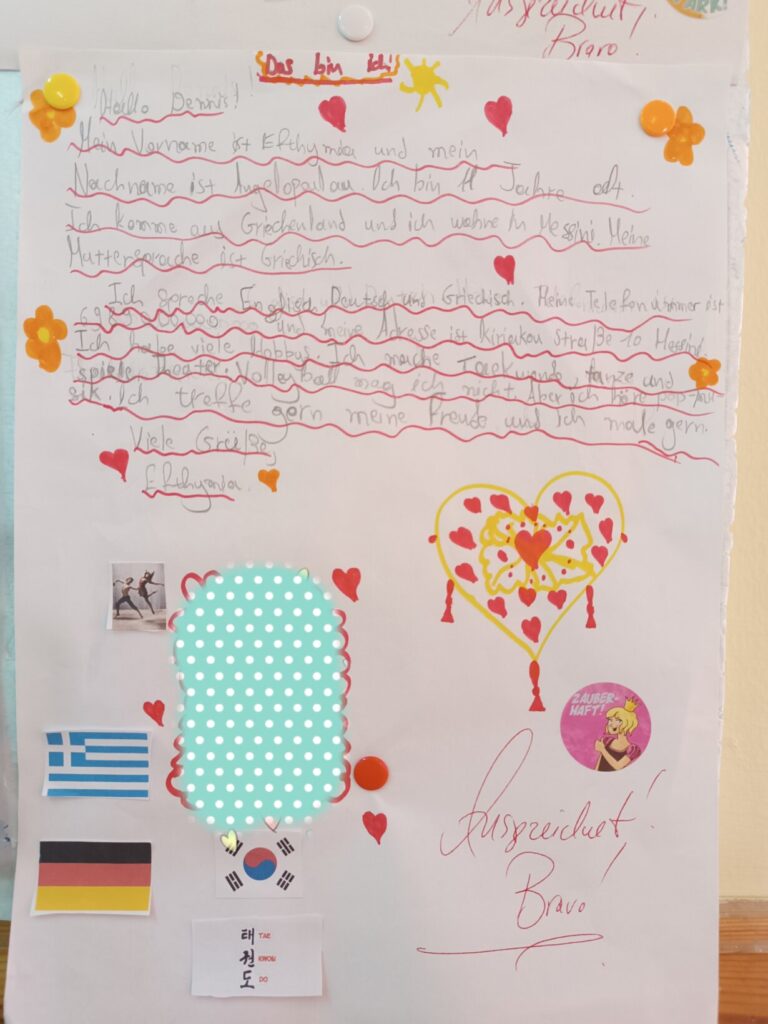 Auszeichnet,
Bravo.
ARK!
Das bin ich!
Hallo Dennis!
Mein Vorname ist Efthymia und mein
Nachname ist Angelopoulou. Ich bin 11 Jahre alt.
Ich komme aus Griechenland und ich wohne in Messini. Meine
Muttersprache ist Griechisch.
Ich spreche Englisch, Deutsch und Griechisch. Meine Telefonnummer ist
und meine Adresse ist Kiriakou Straße 10 Messini
Ich habe viele Hobbys. Ich mache Taekwando, tanze und
spiele Theater. Volleyball mag ich nicht. Aber ich höre pop-mu-
sik. Ich treffe gern meine Freude und ich male gern.
Viele Grüße,
Efthymia.
ZAUBER-
HAFT!
Auszeichnet!
Bravo!
태 TAE
권 KWON
도 DO